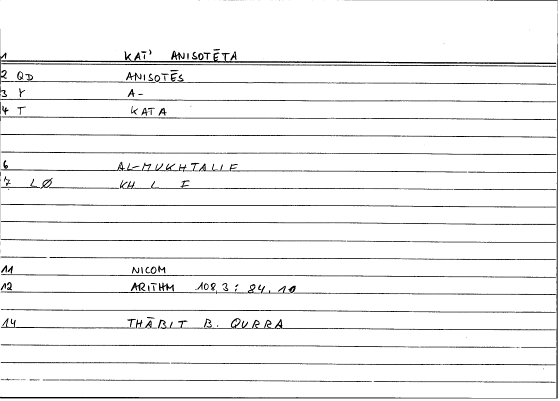 1 KAT' ANISOTĒTA
2 QD ANISOTĒS
3 Y A-
4 T KATA
6 AL-MUKHTALIF
7 LØ KH L F
11 NICOM
12 ARITHM 108,3 : 84.10
14 THĀBIT B. QURRA